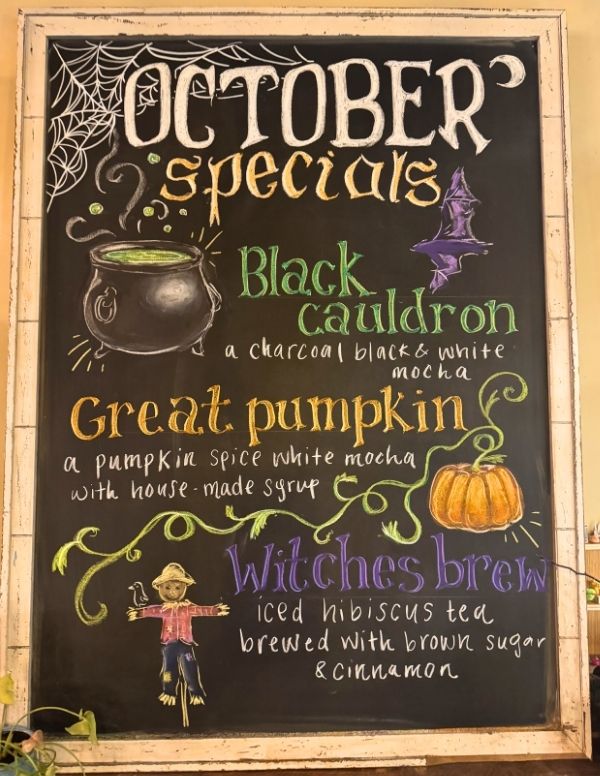 OCTOBER
specials
Black
cauldron
a charcoal black & white
mocha
Great pumpkin
a pumpkin spice white mocha
with house-made syrup
Witches brew
iced hibiscus tea
brewed with brown sugar
& cinnamon